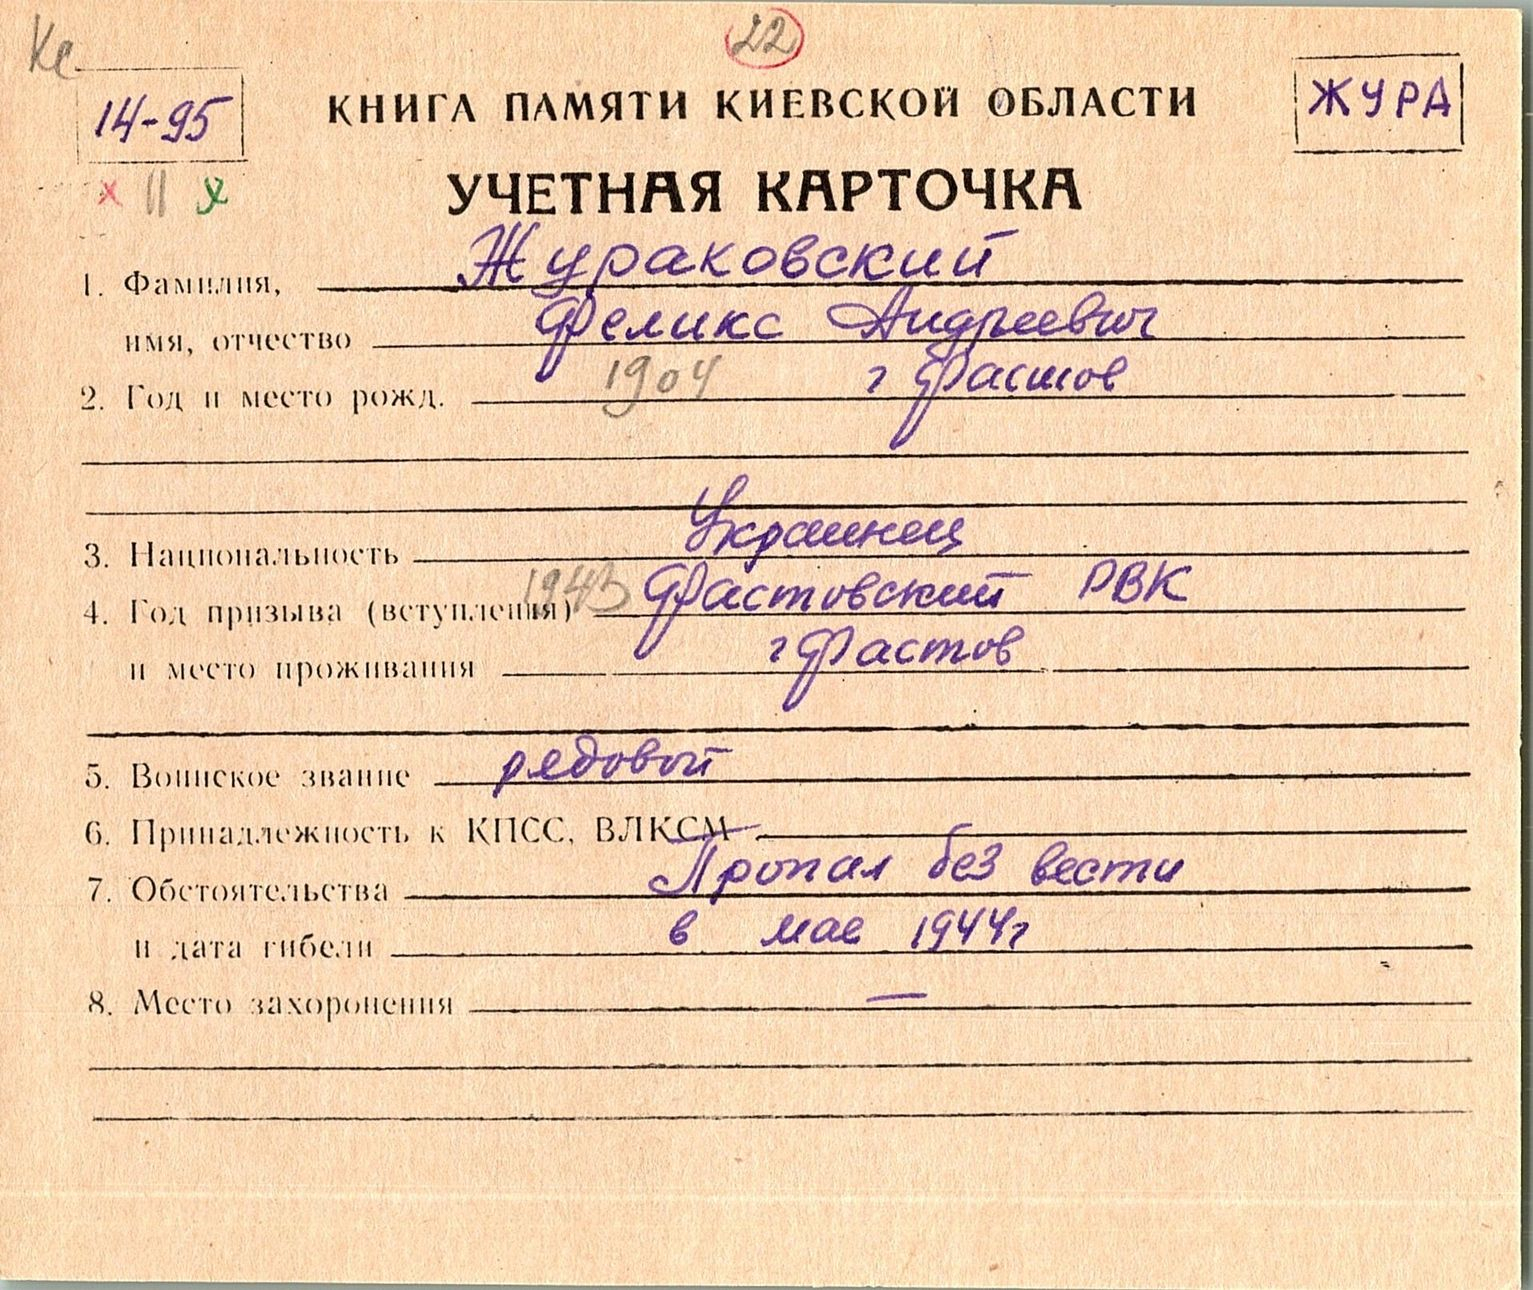 Ке
22
14-95
КНИГА ПАМЯТИ КИЕВСКОЙ ОБЛАСТИ
ЖУРА
х || х
УЧЕТНАЯ КАРТОЧКА
1. Фамилия, Жураковский
имя, отчество Феликс Андреевич
2. Год и место рожд. 1904 г Фастов
3. Национальность Украинец
4. Год призыва (вступления) 1943 Фастовский РВК
и место проживания г Фастов
5. Воинское звание рядовой
6. Принадлежность к КПСС, ВЛКСМ —
7. Обстоятельства Пропал без вести
и дата гибели в мае 1944г
8. Место захоронения —